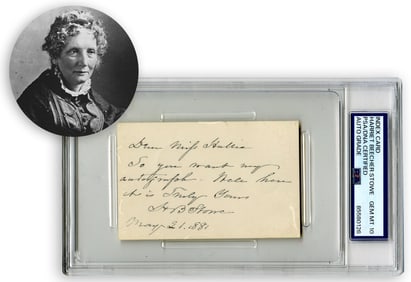 Dear Miss Hallie
So you want my
autograph. Well here
it is Truly Yours
HBStowe
May 21. 1881
INDEX CARD
HARRIET BEECHER STOWE GEM MT 10
PSA/DNA CERTIFIED
AUTO GRADE 85580126